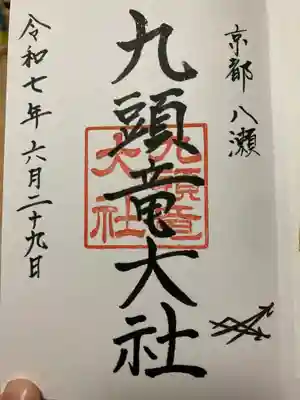 京都 八瀬
九頭竜大社
九頭竜
大社
令和七年六月二十九日